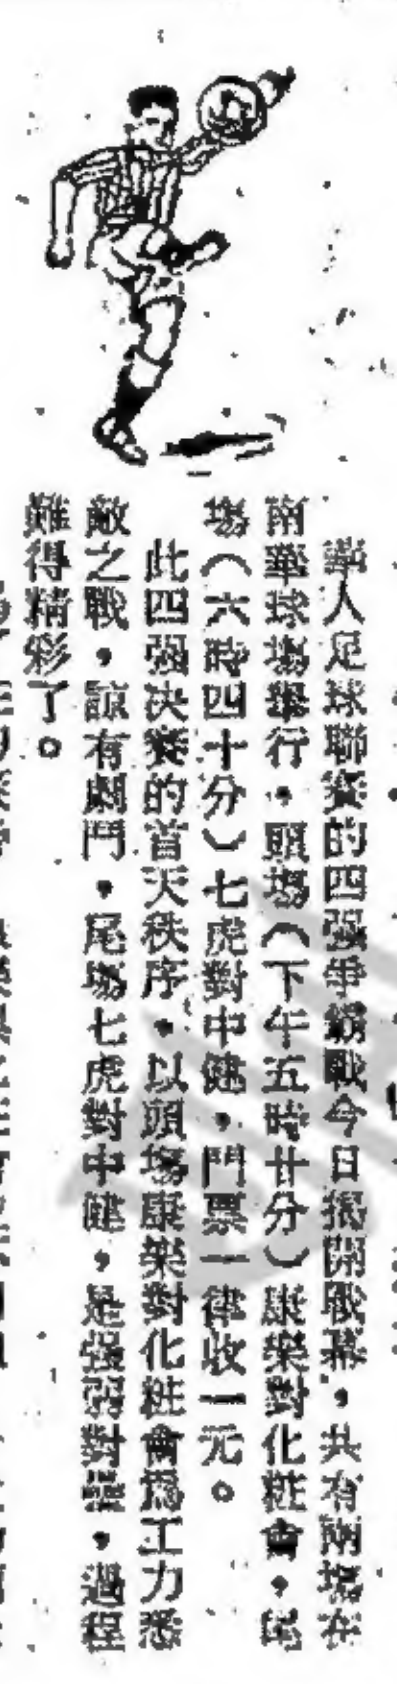 華人足球聯賽的四强爭霸戰今日揭開戰幕，共有兩塲在
南華球塲舉行，頭塲（下午五時廿分）康樂對化粧會，尾
塲（六時四十分）七虎對中健，門票一律收一元。
此四强决賽的首天秩序，以頭塲康樂對化粧會爲工力悉
敵之戰，諒有劇鬥，尾塲七虎對中健，是强弱對壘，過程
難得精彩了。